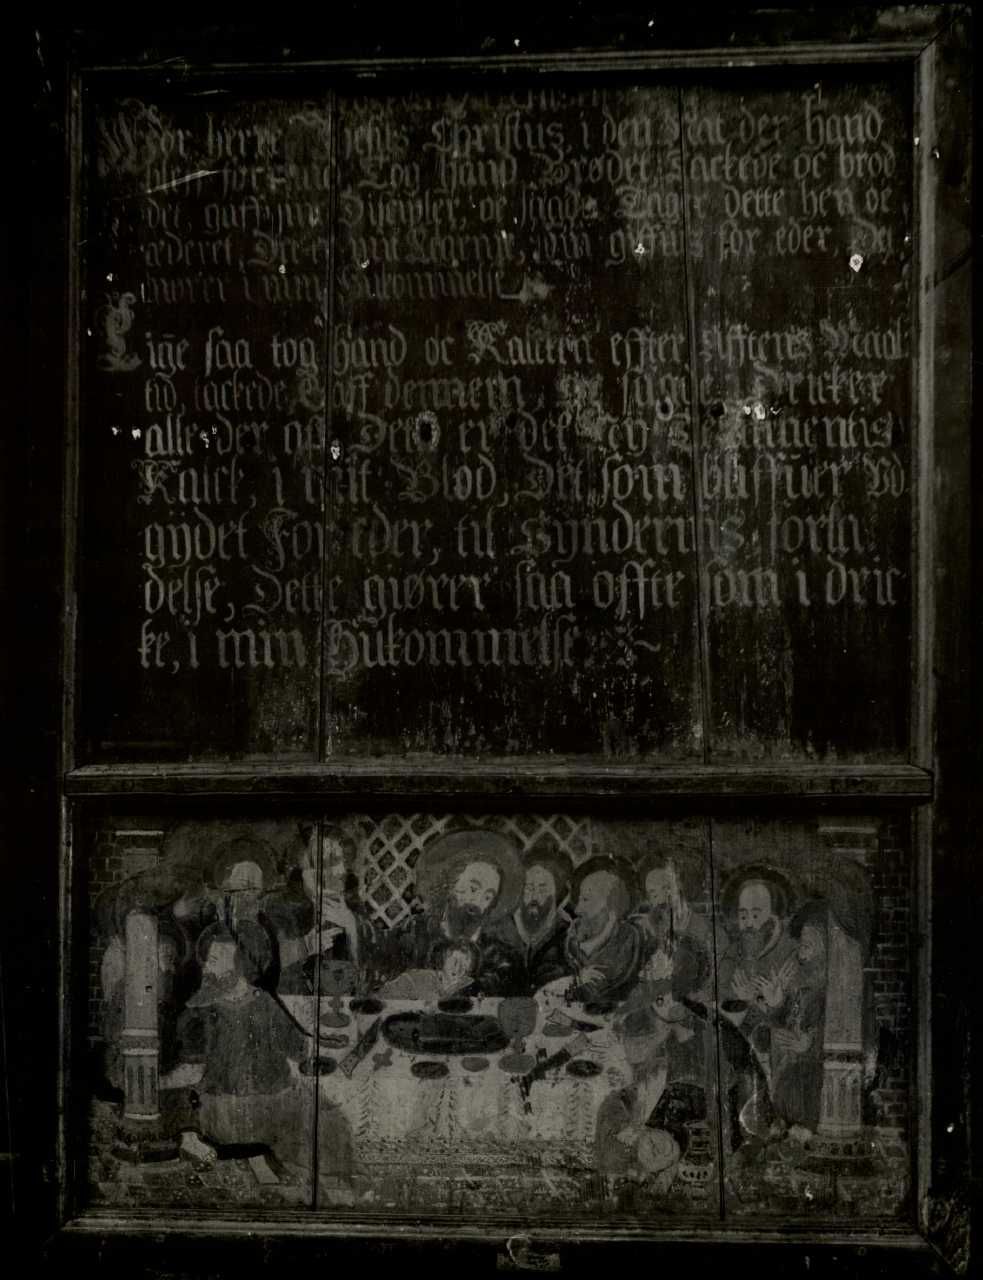 Vor herre Jesus Christus, i den Nat der hand
Tog hand Brødet, Tackede oc brod
det, gaff sine Disciple, oc sagde Tager dette hen oc
æderet, Det er mit Legeme, som giffues for eder, Det
giører i min Hukommelse
Lige saa tog hand oc Kalcken effter Afftens Maal
tid, tackede, Gaff dennem, oc sagde, Dricker
alle der aff Dette er det Ny Testamentis
Kalck, i mit Blod, Det som bliffuer Vd
gydet For eder, til Syndernis forla
delse, Dette giører saa offte som i dric
ke, i min Hukommelse